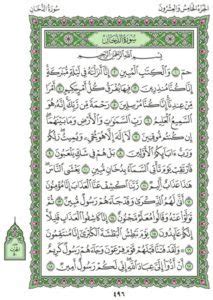 الجزء الخامس والعشرون
سورة الدخان
سُورَةُ الدُّخَانِ
بِسْمِ اللَّهِ الرَّحْمَٰنِ الرَّحِيمِ
حمٓ ١ وَالْكِتَٰبِ الْمُبِينِ ٢ إِنَّا أَنزَلْنَٰهُ فِي لَيْلَةٍ مُّبَٰرَكَةٍ
إِنَّا كُنَّا مُنذِرِينَ ٣ فِيهَا يُفْرَقُ كُلُّ أَمْرٍ حَكِيمٍ ٤ أَمْرًا
مِّنْ عِندِنَا إِنَّا كُنَّا مُرْسِلِينَ ٥ رَحْمَةً مِّن رَّبِّكَ إِنَّهُ هُوَ
السَّمِيعُ الْعَلِيمُ ٦ رَبِّ السَّمَٰوَٰتِ وَالْأَرْضِ وَمَا بَيْنَهُمَا
إِن كُنتُم مُّوقِنِينَ ٧ لَا إِلَٰهَ إِلَّا هُوَ يُحْيِي وَيُمِيتُ رَبُّكُمْ
وَرَبُّ ءَابَائِكُمُ الْأَوَّلِينَ ٨ بَلْ هُمْ فِي شَكٍّ يَلْعَبُونَ ٩
فَارْتَقِبْ يَوْمَ تَأْتِي السَّمَاءُ بِدُخَانٍ مُّبِينٍ ١٠ يَغْشَى النَّاسَ
هَٰذَا عَذَابٌ أَلِيمٌ ١١ رَّبَّنَا اكْشِفْ عَنَّا الْعَذَابَ إِنَّا مُؤْمِنُونَ
١٢ أَنَّىٰ لَهُمُ الذِّكْرَىٰ وَقَدْ جَاءَهُمْ رَسُولٌ مُّبِينٌ ١٣ ثُمَّ
تَوَلَّوْا عَنْهُ وَقَالُوا مُعَلَّمٌ مَّجْنُونٌ ١٤ إِنَّا كَاشِفُوا الْعَذَابِ قَلِيلًا
إِنَّكُمْ عَائِدُونَ ١٥ يَوْمَ نَبْطِشُ الْبَطْشَةَ الْكُبْرَىٰ إِنَّا مُنتَقِمُونَ
١٦ ۞ وَلَقَدْ فَتَنَّا قَبْلَهُمْ قَوْمَ فِرْعَوْنَ وَجَاءَهُمْ رَسُولٌ كَرِيمٌ
١٧ أَنْ أَدُّوا إِلَيَّ عِبَادَ اللَّهِ إِنِّي لَكُمْ رَسُولٌ أَمِينٌ ١٨
٤٩٦